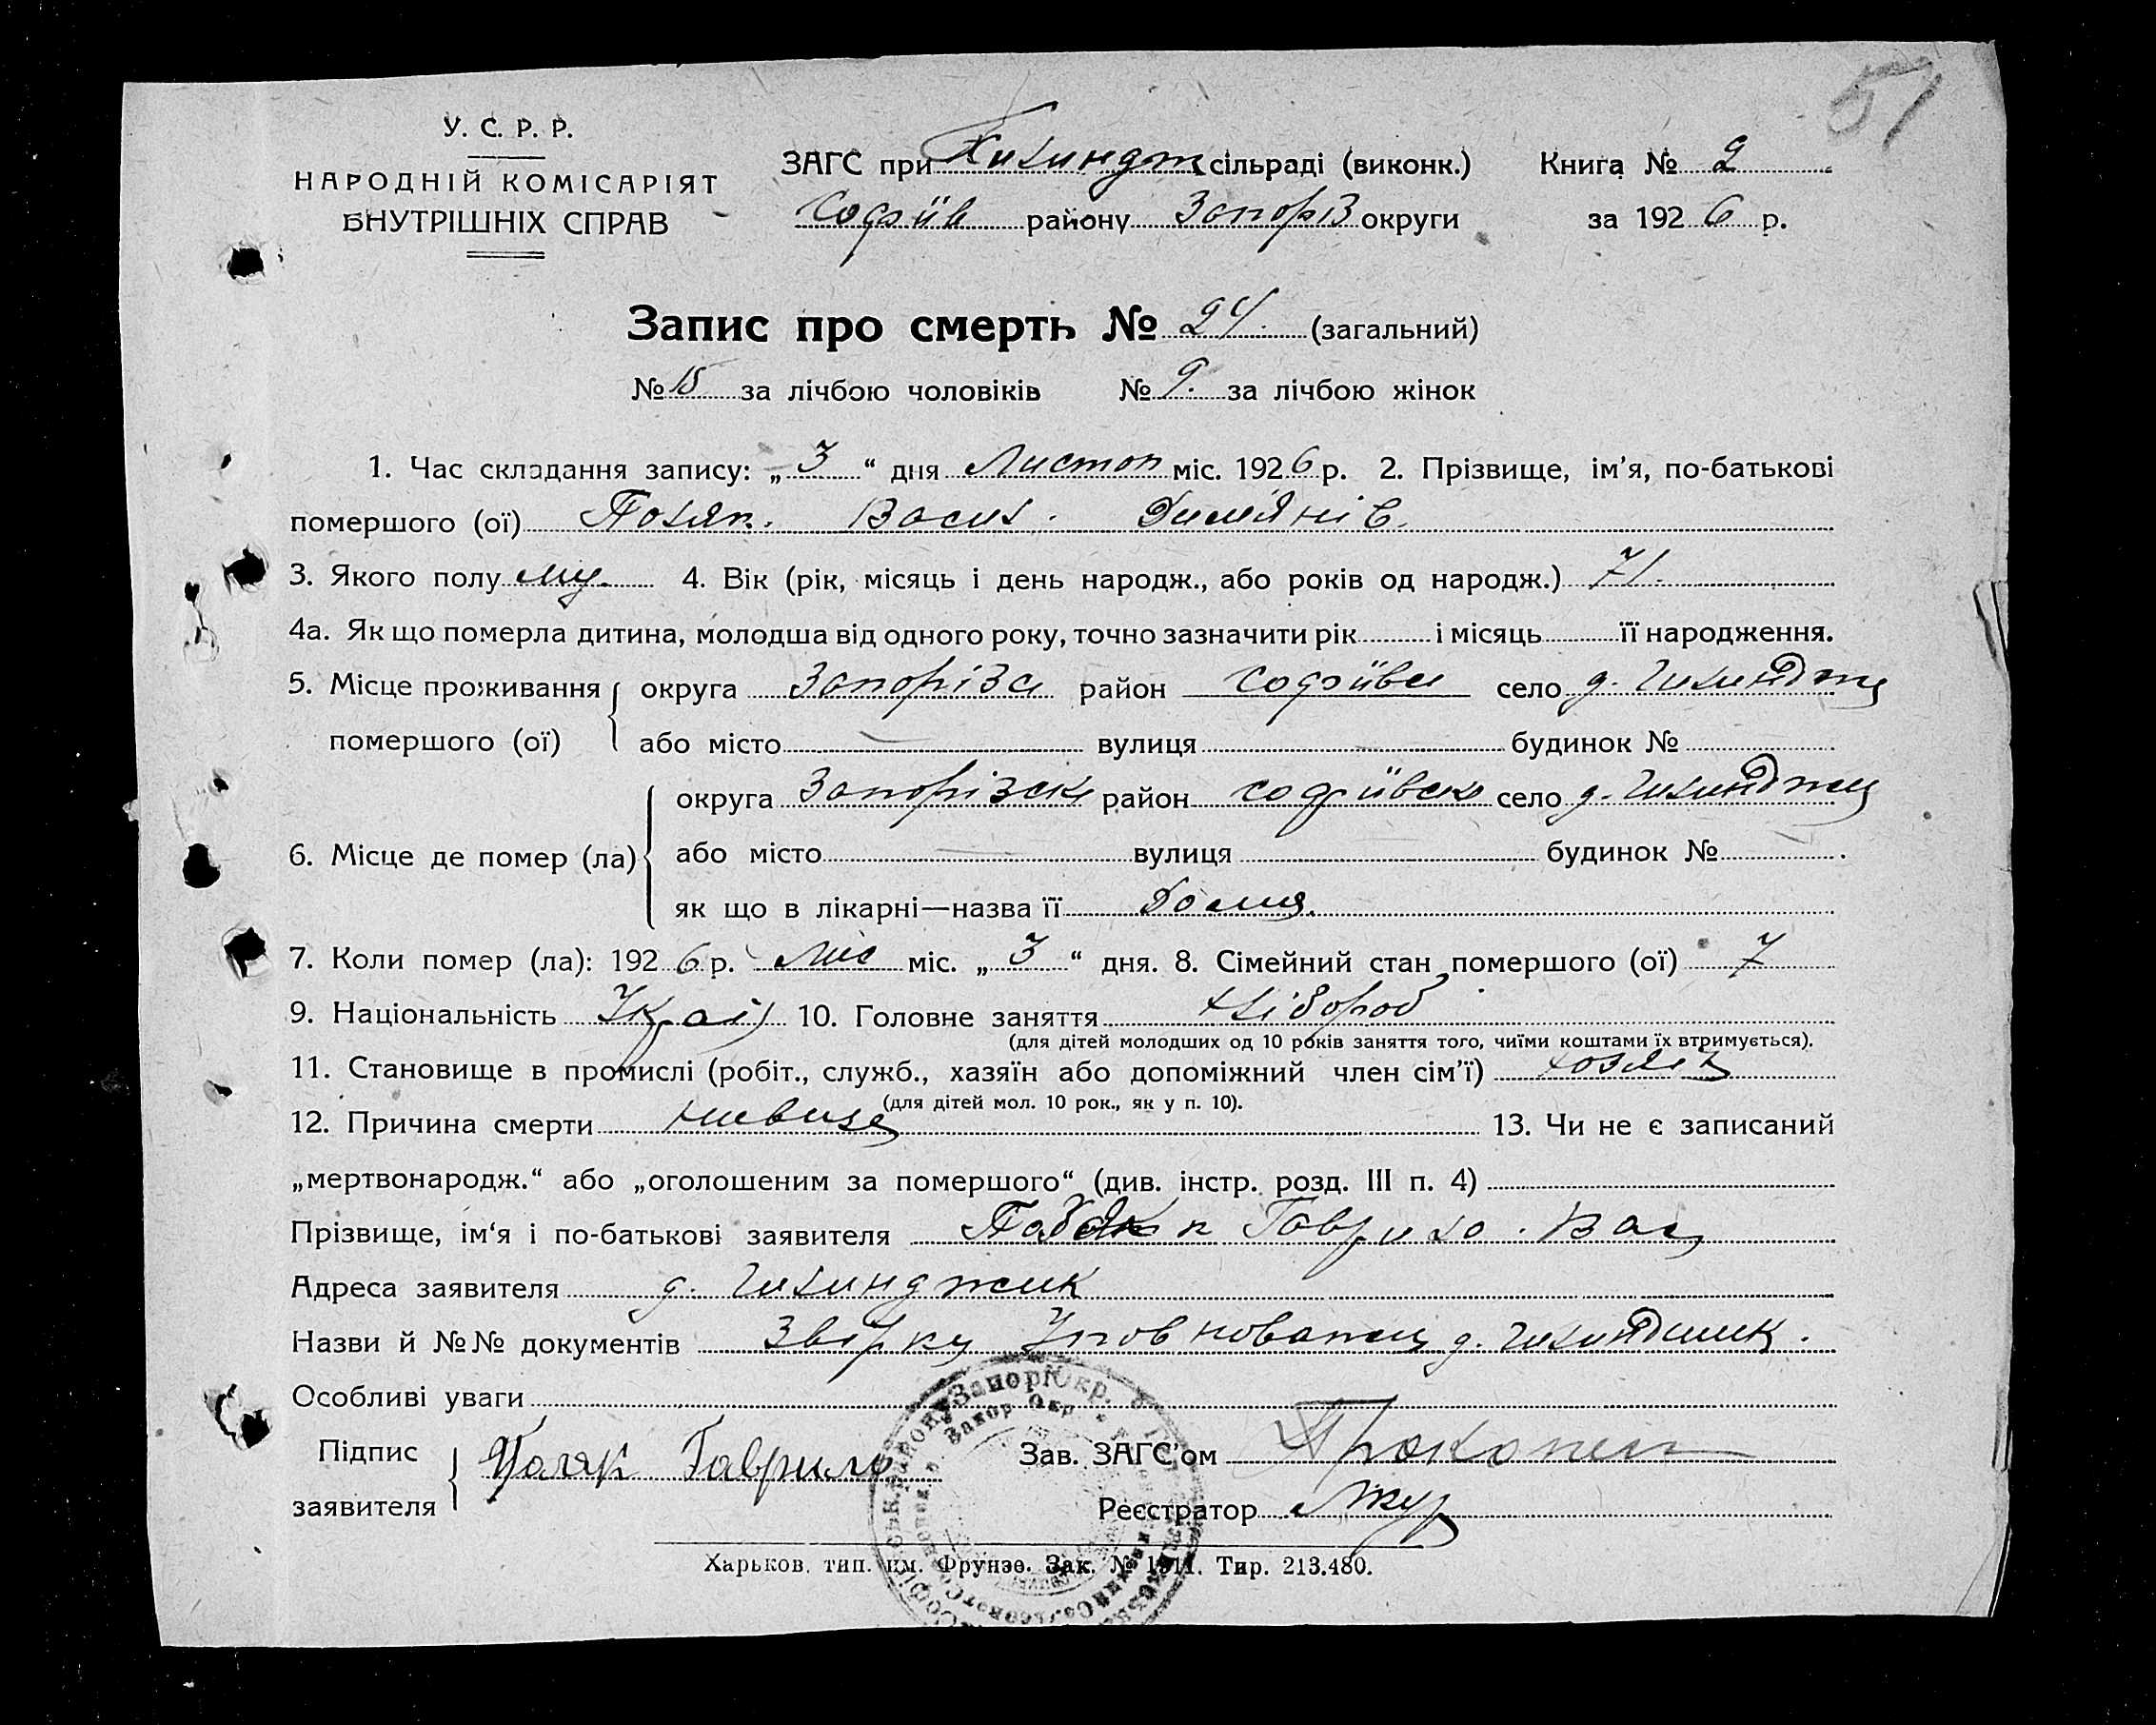 51
У. С. Р. Р.
НАРОДНІЙ КОМІСАРІЯТ
ВНУТРІШНІХ СПРАВ
ЗАГС при сільраді (виконк.) Книга № 2
Софіїв району Запоріз округи за 1926 р.
Запис про смерть № 24 (загальний)
№ 15 за лічбою чоловіків № 9. за лічбою жінок
1. Час складання запису: „ 3 “ дня Листоп міс. 1926 р. 2. Прізвище, ім'я, по-батькові
помершого (ої) Поляк. Васил. Дим'янів.
3. Якого полу му. 4. Вік (рік, місяць і день народж., або років од народж.) 71.
4а. Як що померла дитина, молодша від одного року, точно зазначити рік і місяць її народження.
5. Місце проживання округа район Софіївс село д.
помершого (ої) або місто вулиця будинок №
округа Запорізск район Софіївск село д.
6. Місце де помер (ла) або місто вулиця будинок № .
як що в лікарні—назва її Дома.
7. Коли помер (ла): 1926 р. Лис міс. „ 3 “ дня. 8. Сімейний стан помершого (ої) 7
9. Національність Украї 10. Головне заняття хлібороб
(для дітей молодших од 10 років заняття того, чиїми коштами їх втримується).
11. Становище в промислі (робіт., служб., хазяїн або допоміжний член сім'ї)
(для дітей мол. 10 рок., як у п. 10).
12. Причина смерти 13. Чи не є записаний
„мертвонародж.“ або „оголошеним за помершого“ (див. інстр. розд. III п. 4)
Прізвище, ім'я і по-батькові заявителя Гаврило. Вас
Адреса заявителя д. Гилинджик
Назви й №№ документів д.
Особливі уваги
Підпис Поляк Гаврило Зав. ЗАГС'ом
заявителя Реєстратор
Харьков. тип. им. Фрунзе. Зак. № 1911. Тир. 213.480.